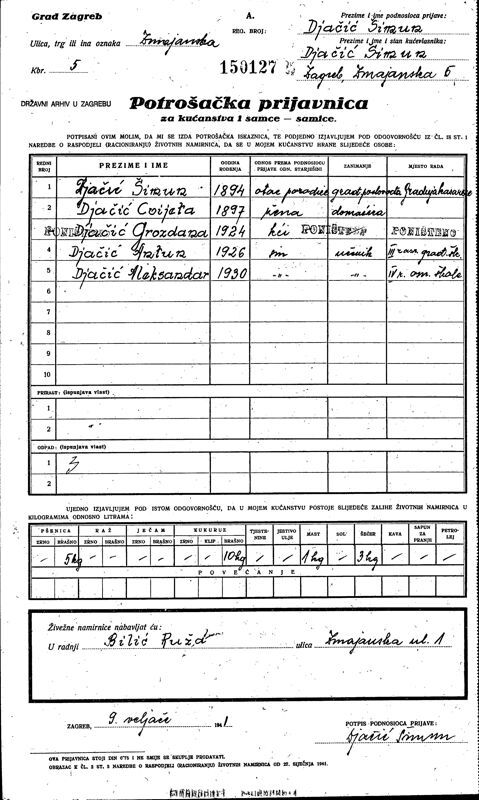 Grad Zagreb
A.
Prezime i ime podnosioca prijave:
Ulica, trg ili ina oznaka Zmajanska
REG. BROJ:
Djačić Šimun
Prezime i ime i stan kućevlasnika:
Djačić Šimun
Kbr. 5
150127
Zagreb, Zmajanska 5
DRŽAVNI ARHIV U ZAGREBU
Potrošačka prijavnica
za kućanstva i samce — samice.
POTPISANI OVIM MOLIM, DA MI SE IZDA POTROŠAČKA ISKAZNICA, TE PODJEDNO IZJAVLJUJEM POD ODGOVORNOŠĆU IZ ČL. 18 ST. 1
NAREDBE O RASPODJELI (RACIONIRANJU) ŽIVOTNIH NAMIRNICA, DA SE U MOJEM KUĆANSTVU HRANE SLIJEDEĆE OSOBE:
REDNI BROJ PREZIME I IME GODINA ROĐENJA ODNOS PREMA PODNOSIOCU PRIJAVE ODN. STARJEŠINI ZANIMANJE MJESTO RADA
1 Djačić Šimun 1894 otac porodice
2 Djačić Cvijeta 1897 žena domaćica
3 Djačić Grozdana 1924 kći PONIŠTENO PONIŠTENO
4 Djačić Antun 1926 sin učenik
5 Djačić Aleksandar 1930 -„- -„- IV r. osn. škole
6
7
8
9
10
PRIRAST: (ispunjava vlast)
1
2
OTPAD: (ispunjava vlast)
1
2
UJEDNO IZJAVLJUJEM POD ISTOM ODGOVORNOŠĆU, DA U MOJEM KUĆANSTVU POSTOJE SLIJEDEĆE ZALIHE ŽIVOTNIH NAMIRNICA U
KILOGRAMIMA ODNOSNO LITRAMA:
PŠENICA RAŽ JEČAM KUKURUZ TJESTENINE JESTIVO ULJE MAST SOL ŠEĆER KAVA SAPUN ZA PRANJE PETROLEJ
ZRNO BRAŠNO ZRNO BRAŠNO ZRNO BRAŠNO ZRNO KLIP BRAŠNO
- 5kg - - - - - - 10kg - - 1kg - 3kg - - -
POVEĆANJE
Živežne namirnice nabavljat ću:
U radnji Bilić ulica Zmajanska ul. 1
ZAGREB, 9. veljače 1941
POTPIS PODNOSIOCA PRIJAVE:
Djačić Šimun
OVA PRIJAVNICA STOJI DIN 0'75 I NE SMIJE SE SKUPLJE PRODAVATI.
OBRAZAC K ČL. 2 ST. 3 NAREDBE O RASPODJELI (RACIONIRANJU) ŽIVOTNIH NAMIRNICA OD 22. SIJEČNJA 1941.